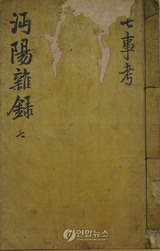 七事考
沔陽雜錄
七
연합뉴스